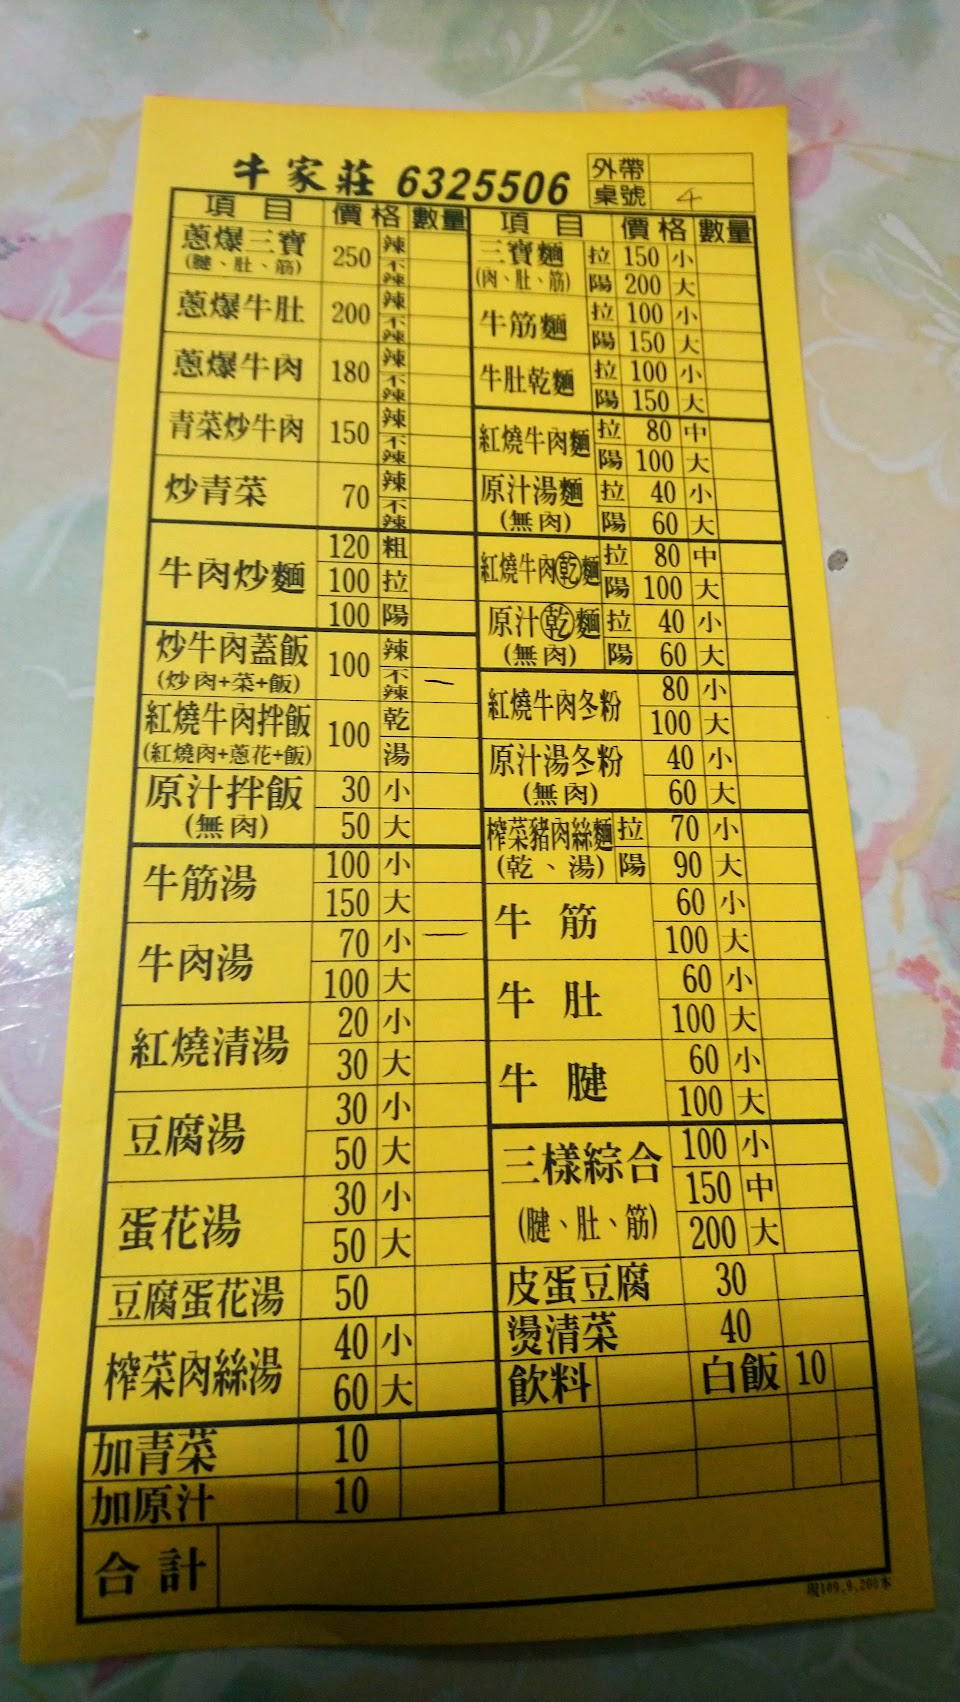 牛家莊 6325506
外帶
桌號 4
項目 價格 數量
蔥爆三寶 250 辣
(腱、肚、筋) 不辣
蔥爆牛肚 200 辣
不辣
蔥爆牛肉 180 辣
不辣
青菜炒牛肉 150 辣
不辣
炒青菜 70 辣
不辣
牛肉炒麵 120 粗
100 拉
100 陽
炒牛肉蓋飯 100 辣
(炒肉+菜+飯) 不辣 一
紅燒牛肉拌飯 100 乾
(紅燒肉+蔥花+飯) 湯
原汁拌飯 30 小
(無肉) 50 大
牛筋湯 100 小
150 大
牛肉湯 70 小 一
100 大
紅燒清湯 20 小
30 大
豆腐湯 30 小
50 大
蛋花湯 30 小
50 大
豆腐蛋花湯 50
榨菜肉絲湯 40 小
60 大
加青菜 10
加原汁 10
項目 價格 數量
三寶麵 拉 150 小
(肉、肚、筋) 陽 200 大
牛筋麵 拉 100 小
陽 150 大
牛肚乾麵 拉 100 小
陽 150 大
紅燒牛肉麵 拉 80 中
陽 100 大
原汁湯麵 拉 40 小
(無肉) 陽 60 大
紅燒牛肉乾麵 拉 80 中
陽 100 大
原汁乾麵 拉 40 小
(無肉) 陽 60 大
紅燒牛肉冬粉 80 小
100 大
原汁湯冬粉 40 小
(無肉) 60 大
榨菜豬肉絲麵 拉 70 小
(乾、湯) 陽 90 大
牛筋 60 小
100 大
牛肚 60 小
100 大
牛腱 60 小
100 大
三樣綜合 100 小
150 中
(腱、肚、筋) 200 大
皮蛋豆腐 30
燙清菜 40
飲料 白飯 10
合計
109.9.200本